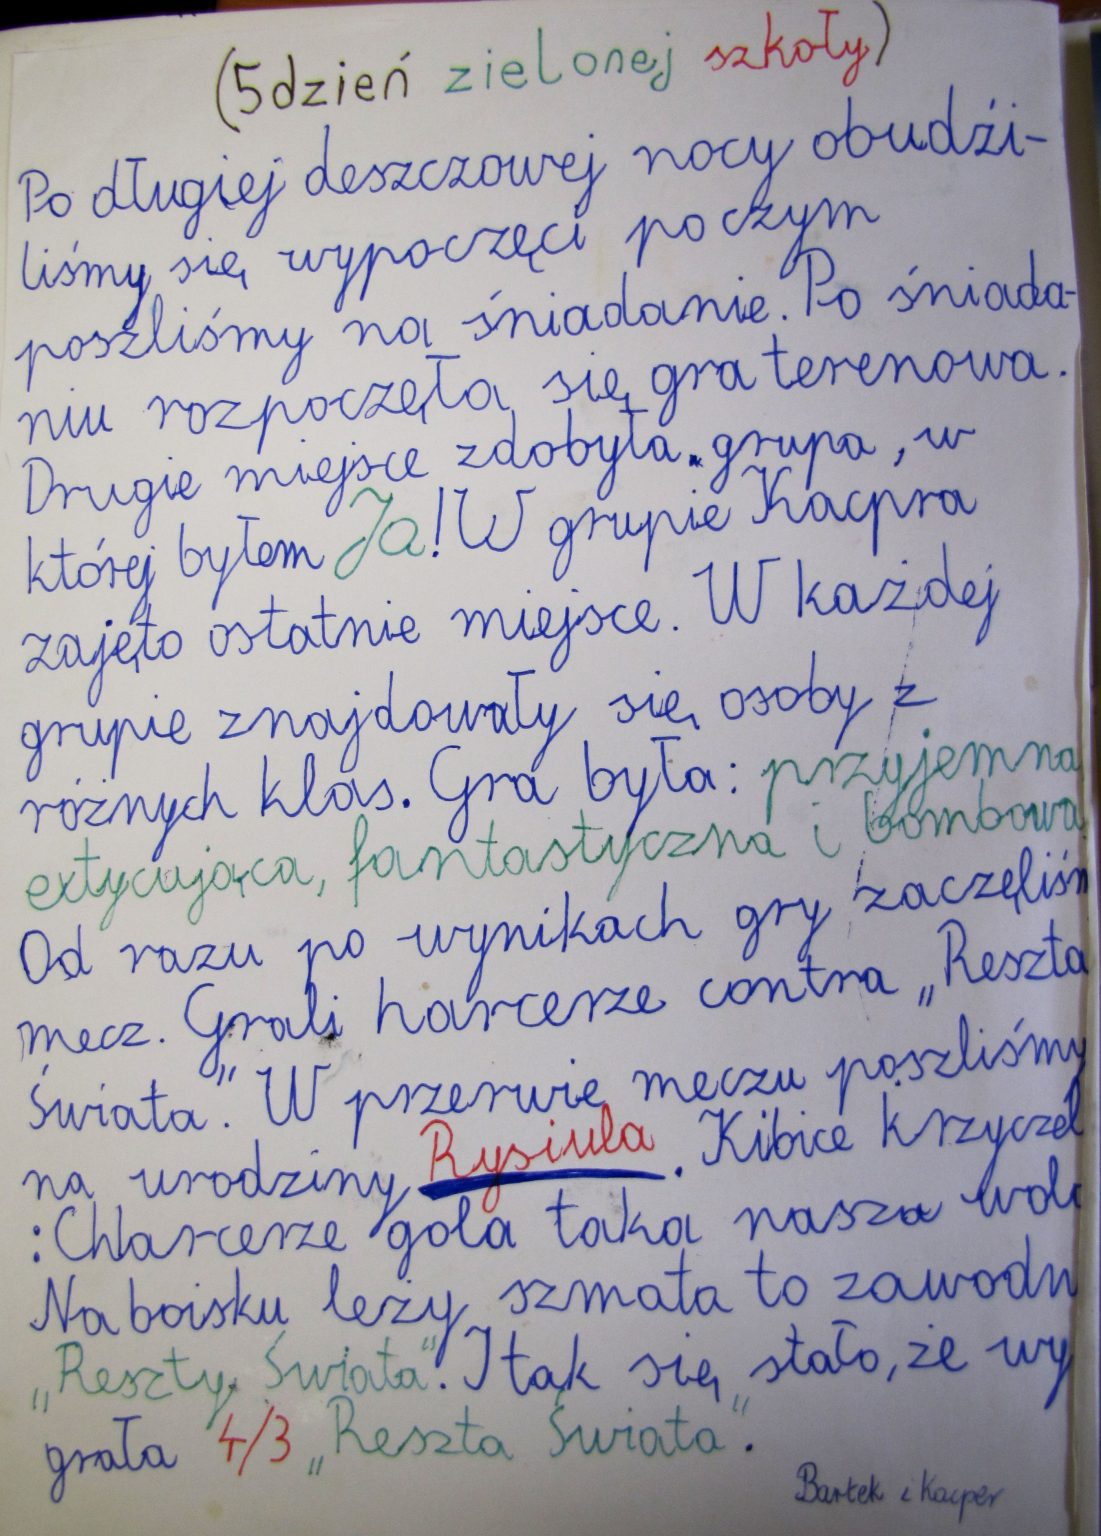 (5dzień zielonej szkoły)
Po długiej deszczowej nocy obudźi-
liśmy się wypoczęci poczym
poszliśmy na śniadanie. Po śniada-
niu rozpoczęła się gra terenowa.
Drugie miejsce zdobyła grupa, w
której byłem Ja! W grupie Kacpra
zajęto ostatnie miejsce. W każdej
grupie znajdowały się osoby z
różnych klas. Gra była: przyjemna
extycująca, fantastyczna i bombowa
Od razu po wynikach gry zaczęliśm
mecz. Grali harcerze contra „Reszta
Świata". W przerwie meczu poszliśmy
na urodziny Rysiula. Kibice krzyczel
:Chlarcerze gola taka nasza wola
Na boisku leży szmata to zawodn
„Reszty Świata". I tak się stało, że wy
grała 4/3 „Reszta Świata".
Bartek i Kacper